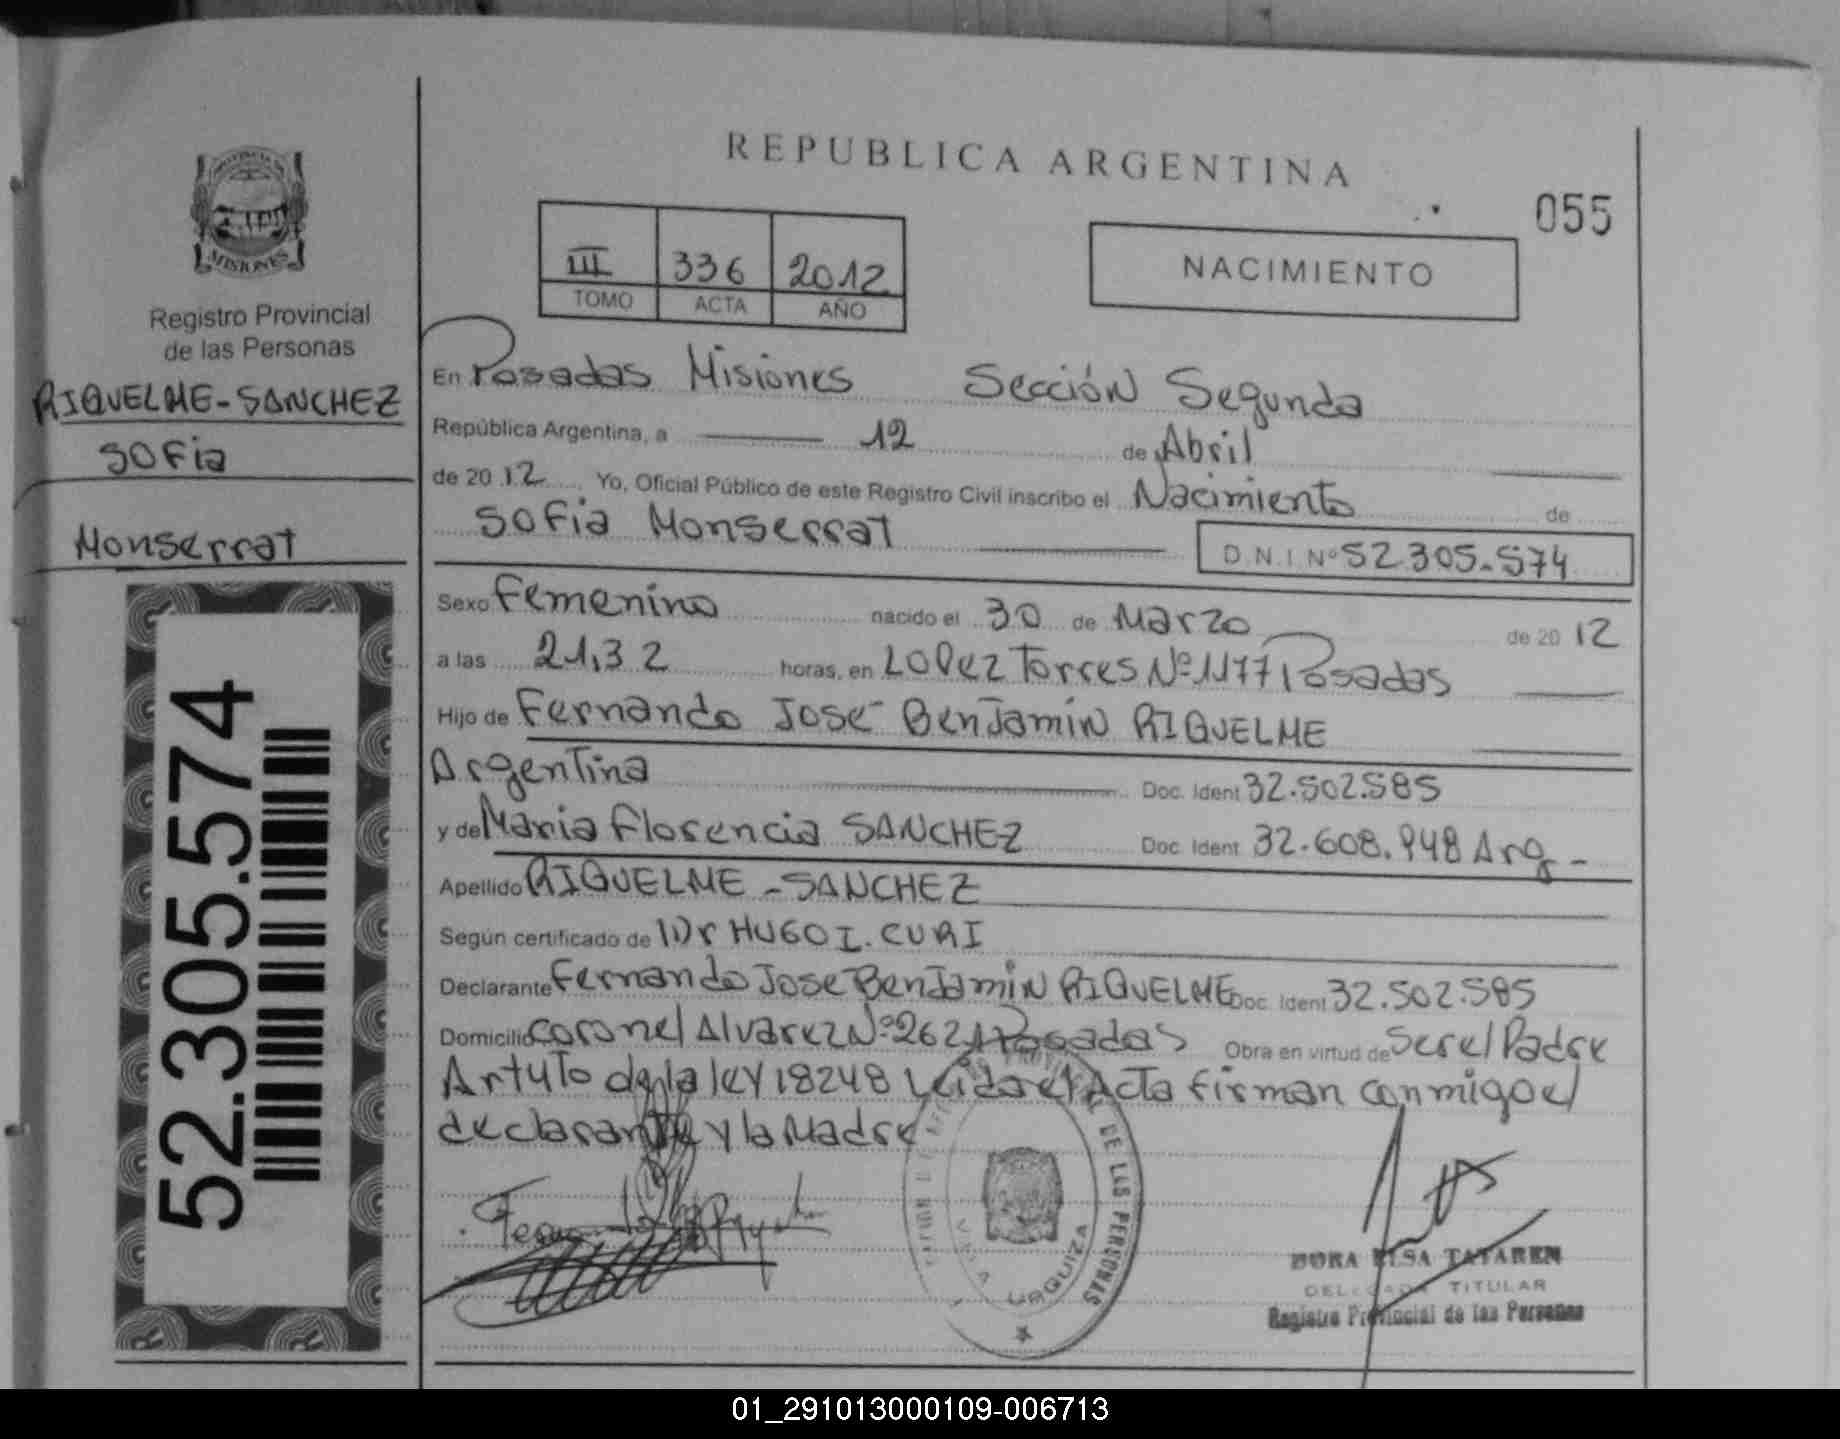 PROVINCIA DE
MISIONES
Registro Provincial
de las Personas
RIQUELME-SANCHEZ
SOFia
Monserrat
52.305.574
REPUBLICA ARGENTINA
055
III 336 2012
TOMO ACTA AÑO
NACIMIENTO
En Posadas Misiones Sección Segunda
República Argentina, a 12 de Abril
de 2012 Yo, Oficial Público de este Registro Civil inscribo el Nacimiento de
SOFia Monserrat D.N.I. Nº 52.305.574
Sexo Femenino nacido el 30 de Marzo de 2012
a las 21,32 horas, en LOPez Torres Nº 1177 Posadas
Hijo de Fernando José Benjamin RIQUELME
Argentina Doc. Ident 32.502.585
y de Maria Florencia SANCHEZ Doc. Ident 32.608.948 Arg-
Apellido RIQUELME-SANCHEZ
Según certificado de Dr HUGO I. CURI
Declarante Fernando Jose Benjamin RIQUELME Doc. Ident 32.502.585
Domicilio coronel Alvarez Nº 2621 Posadas Obra en virtud de ser el Padre
de la ley 18248 Leida el Acta firman conmigo el
declarante y la Madre
DE LAS PERSONAS
VILLA URQUIZA
DORA ELSA TATAREN
DELEGADA TITULAR
Registro Provincial de las Personas
01_291013000109-006713